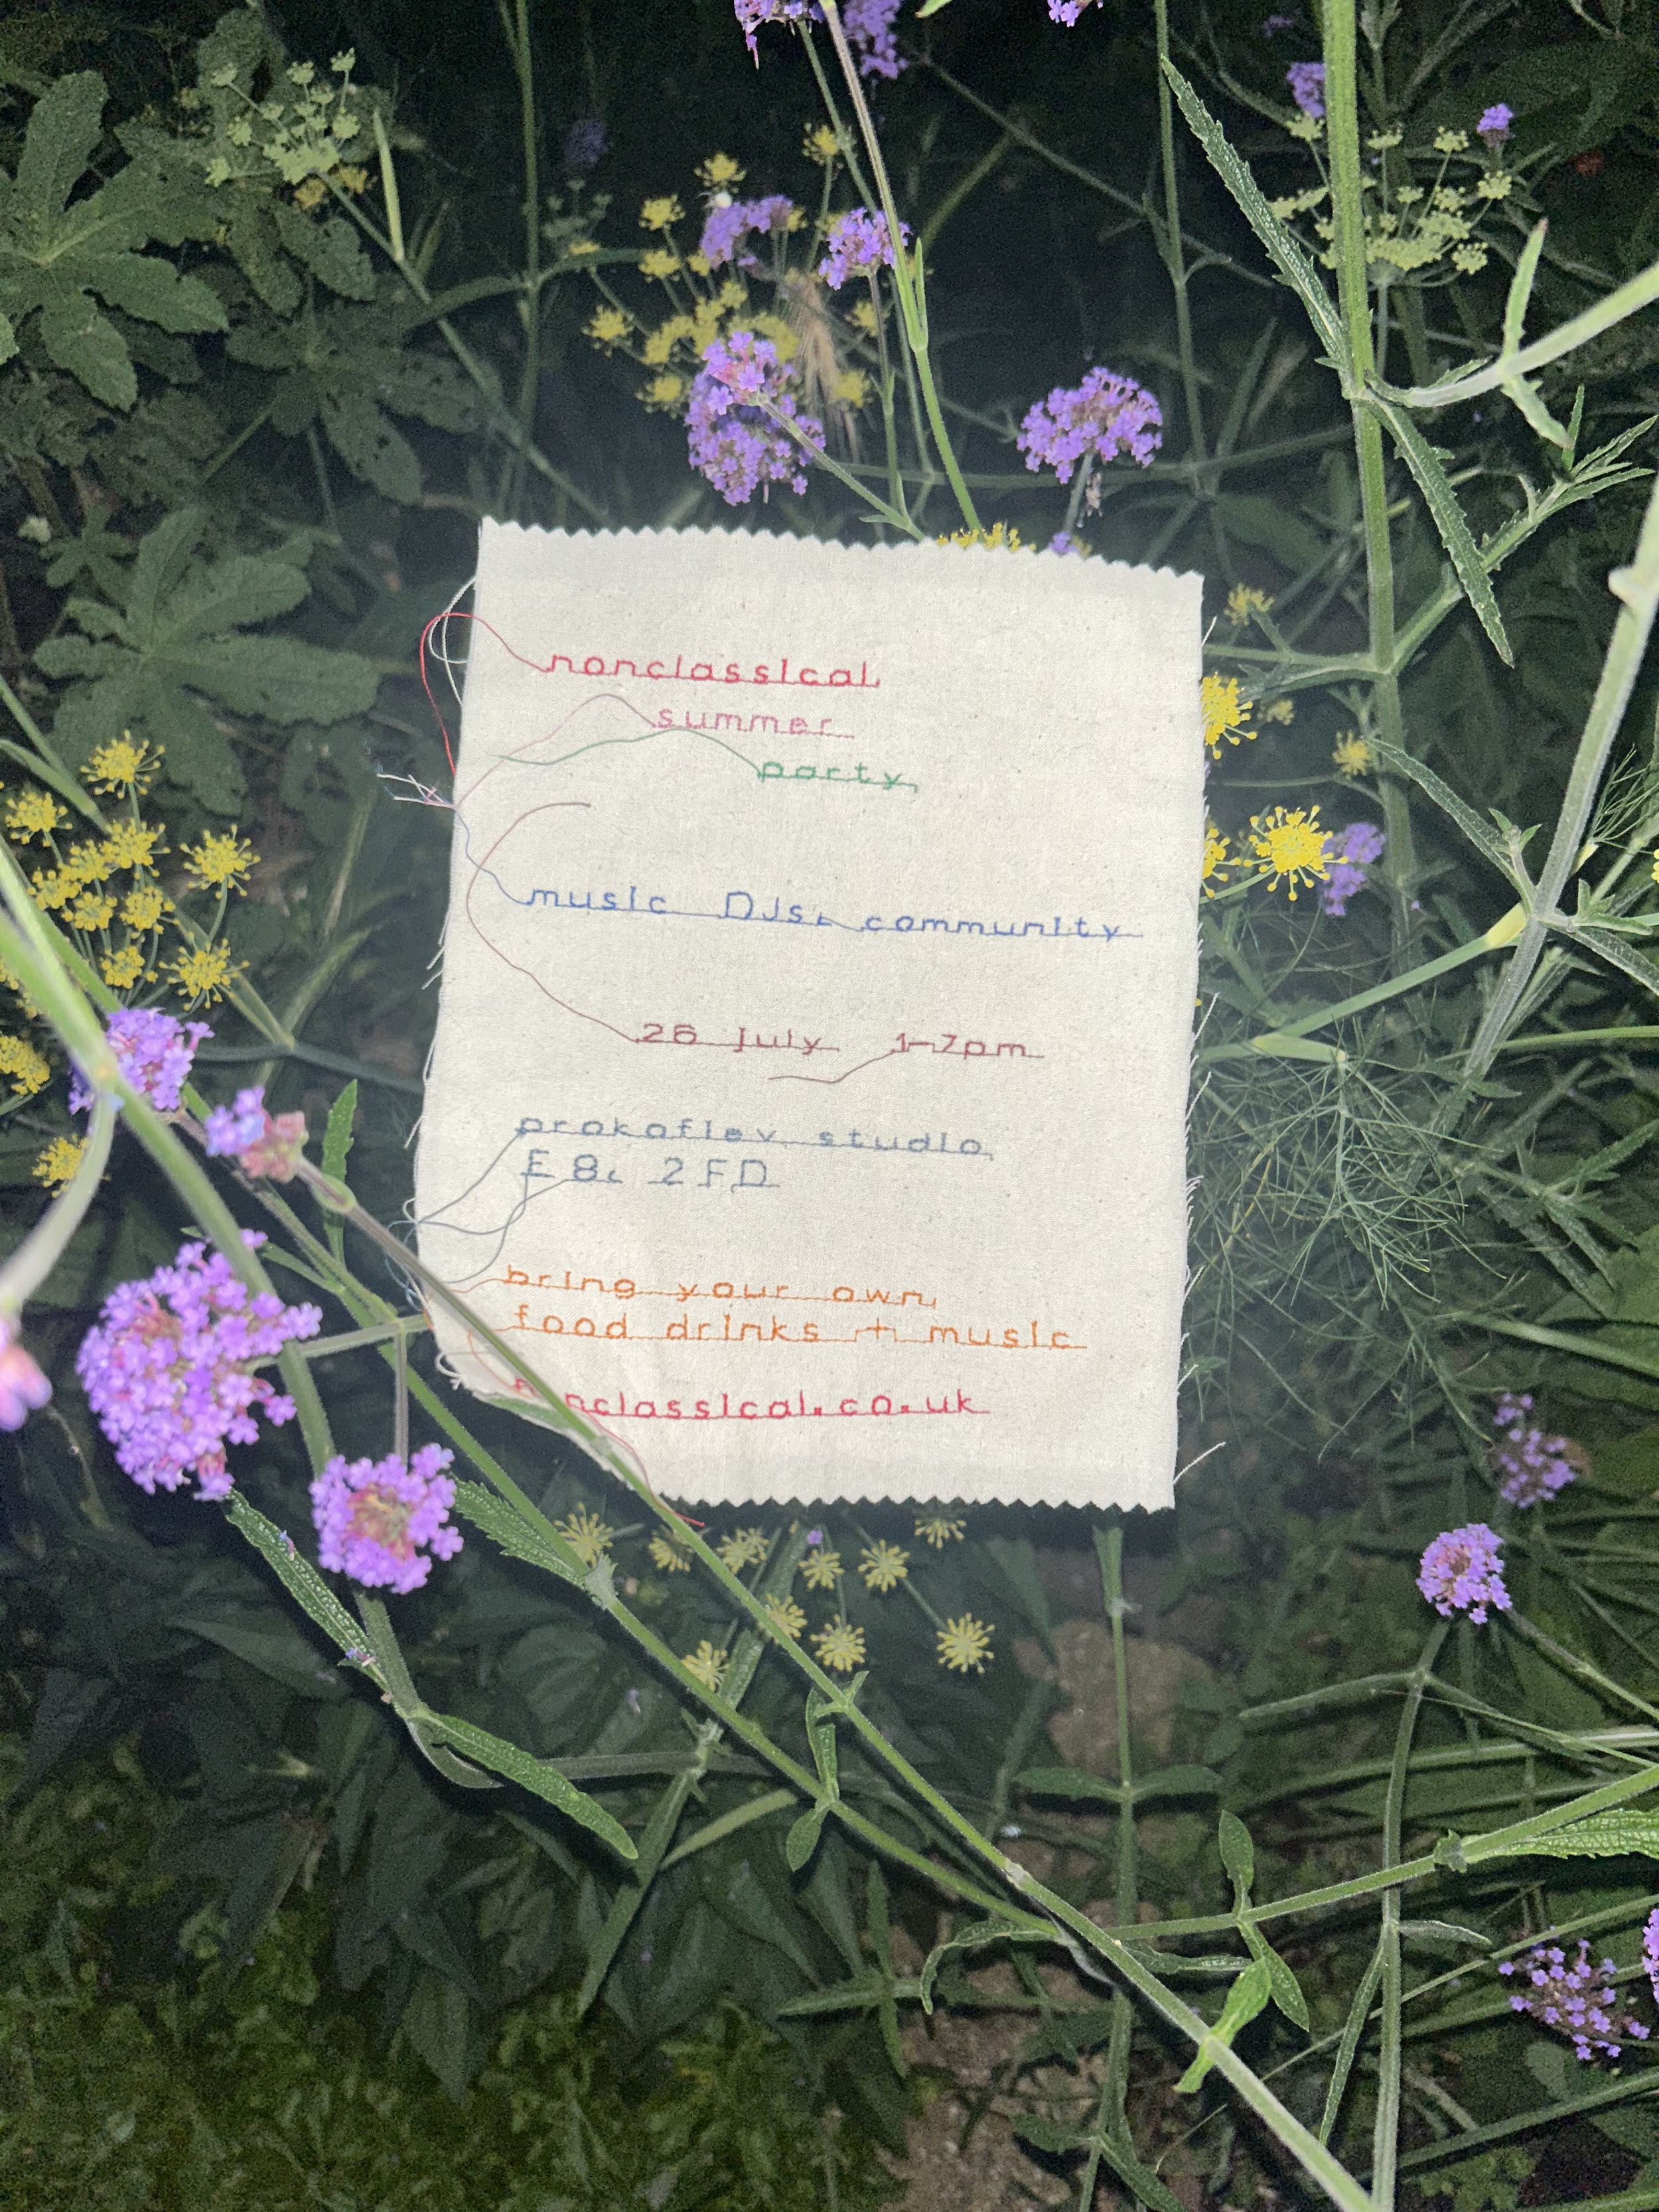 nonclassical
summer
party
music DJs, community
26 july 1-7pm
prokofiev studio
E8, 2FD
bring your own
food drinks + music
nonclassical.co.uk